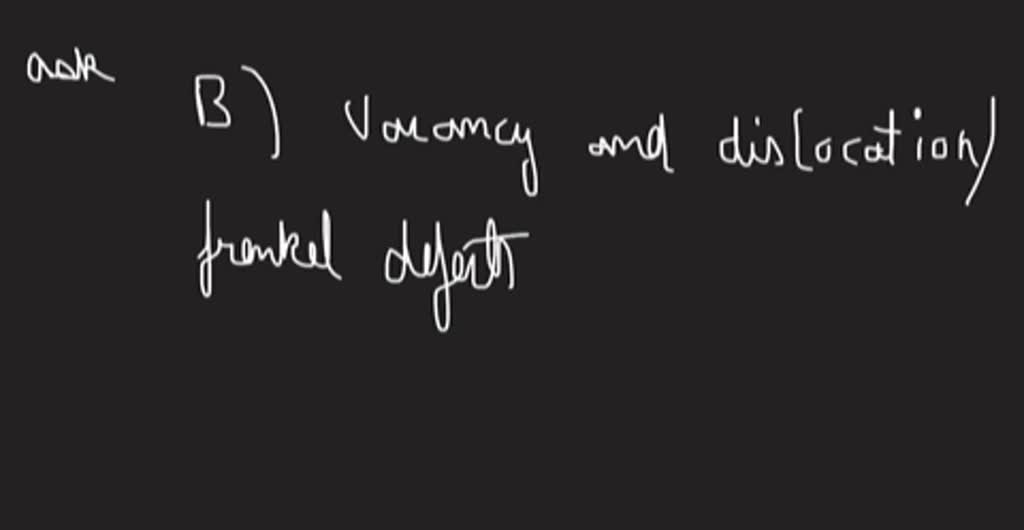 ask
B) Vacancy and dislocation/
frenkel defects